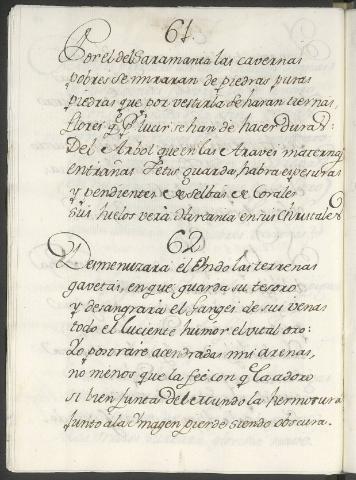 61
Por el del Garamanta las cavernas
pobres se miraran de piedras puras
piedras que por vestirla se haran tiernas,
flores q̃ P. lucir se han de hacer duras:
Del Arbol que en las Araves maternas
entrañas Fetus guarda, habra espesuras
y pendientes de selbas de Corales
sus huelos verà Hircania en sus Christales
62
Desmenuzarà el Indo las terrenas
gavetas, en que guarda su tesoro
y desangrarà el Ganges de sus venas
todo el luciente humor el vital oro:
Yo postrarè acendradas mis arenas,
no menos que la feè con q̃ la adoro
si bien junta del mundo la hermosura
junto a la Ymagen pierde siendo obscura.